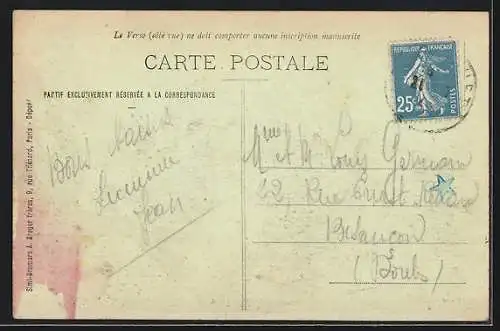 Le Verso (côté vue) ne doit comporter aucune inscription manuscrite
CARTE POSTALE
PARTIE EXCLUSIVEMENT RÉSERVÉE A LA CORRESPONDANCE
REPUBLIQUE FRANÇAISE
25c
POSTES
Bons baisers
Jean
Mme et M. Louis Germain
42, Rue Ernest Renan
Besançon
(Doubs)
Simili-Bromure A. Breger frères, 9, rue Thénard, Paris - Déposé